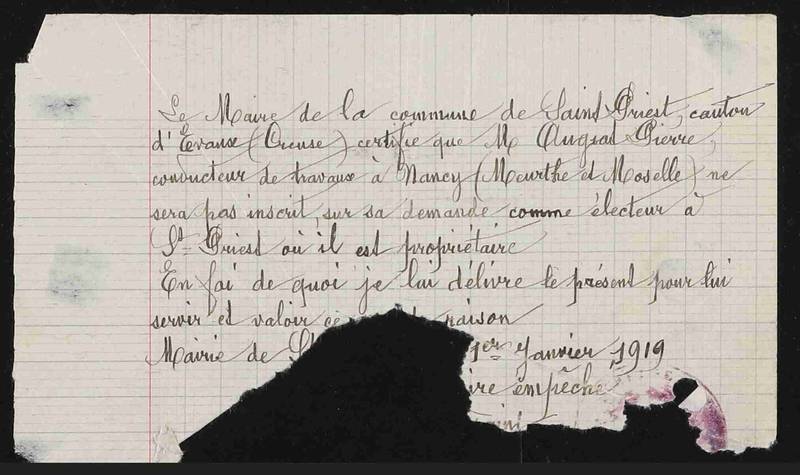 Le Maire de la commune de Saint Priest, canton
d'Evaux (Creuse) certifie que M Augras Pierre,
conducteur de travaux à Nancy (Meurthe et Moselle) ne
sera pas inscrit, sur sa demande comme électeur à
St Priest où il est propriétaire
En foi de quoi je lui délivre le présent pour lui
servir et valoir ce raison
Mairie de St 1er Janvier 1919
ire empêche